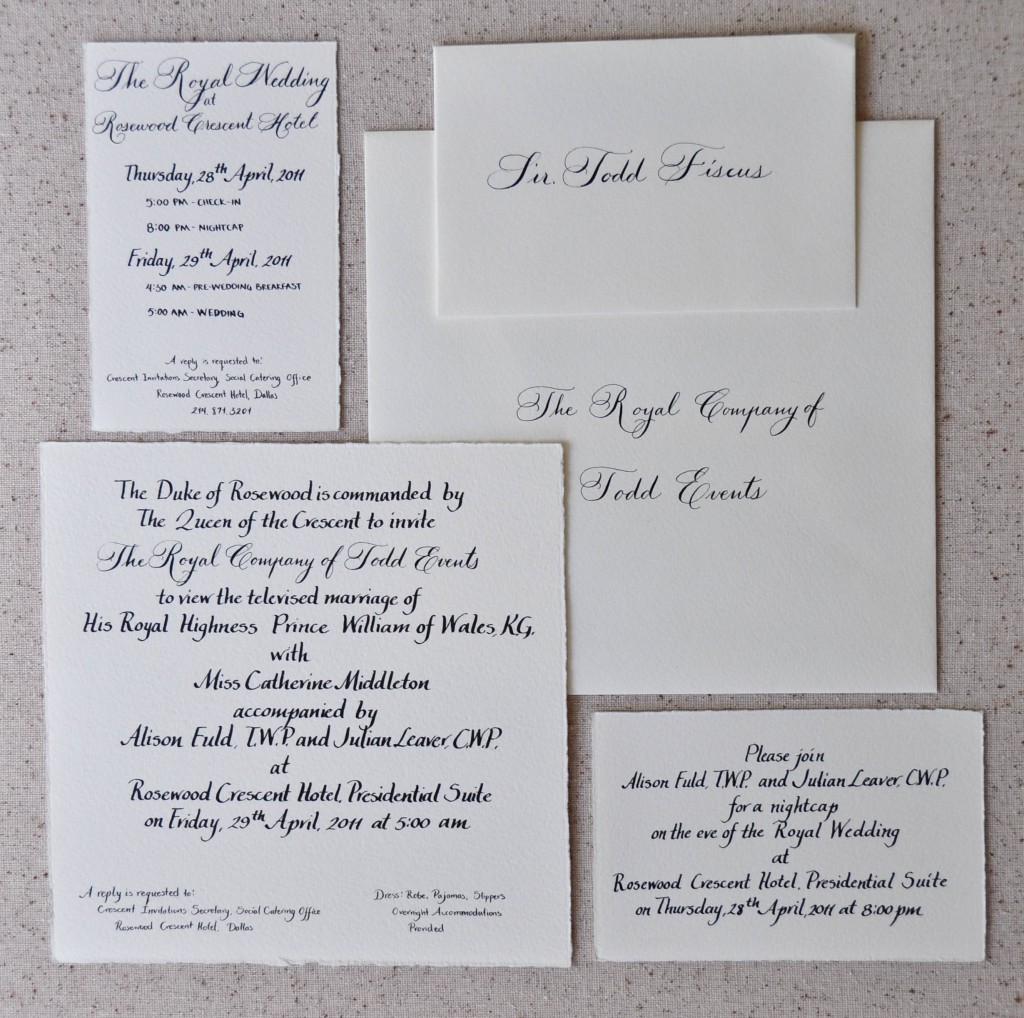 The Royal Wedding
at
Rosewood Crescent Hotel
Thursday, 28th April, 2011
5:00 PM - CHECK-IN
8:00 PM - NIGHTCAP
Friday, 29th April, 2011
4:30 AM - PRE-WEDDING BREAKFAST
5:00 AM - WEDDING
A reply is requested to:
Crescent Invitations Secretary, Social Catering Office
Rosewood Crescent Hotel, Dallas
214.871.3201
Sir. Todd Fiscus
The Royal Company of
Todd Events
The Duke of Rosewood is commanded by
The Queen of the Crescent to invite
The Royal Company of Todd Events
to view the televised marriage of
His Royal Highness Prince William of Wales, K.G.
with
Miss Catherine Middleton
accompanied by
Alison Fuld, T.W.P. and Julian Leaver, C.W.P.
at
Rosewood Crescent Hotel, Presidential Suite
on Friday, 29th April, 2011 at 5:00 am
A reply is requested to:
Crescent Invitations Secretary, Social Catering Office
Rosewood Crescent Hotel, Dallas
Dress: Robe, Pajamas, Slippers
Overnight Accommodations
Provided
Please join
Alison Fuld, T.W.P. and Julian Leaver, C.W.P.
for a nightcap
on the eve of the Royal Wedding
at
Rosewood Crescent Hotel, Presidential Suite
on Thursday, 28th April, 2011 at 8:00 pm